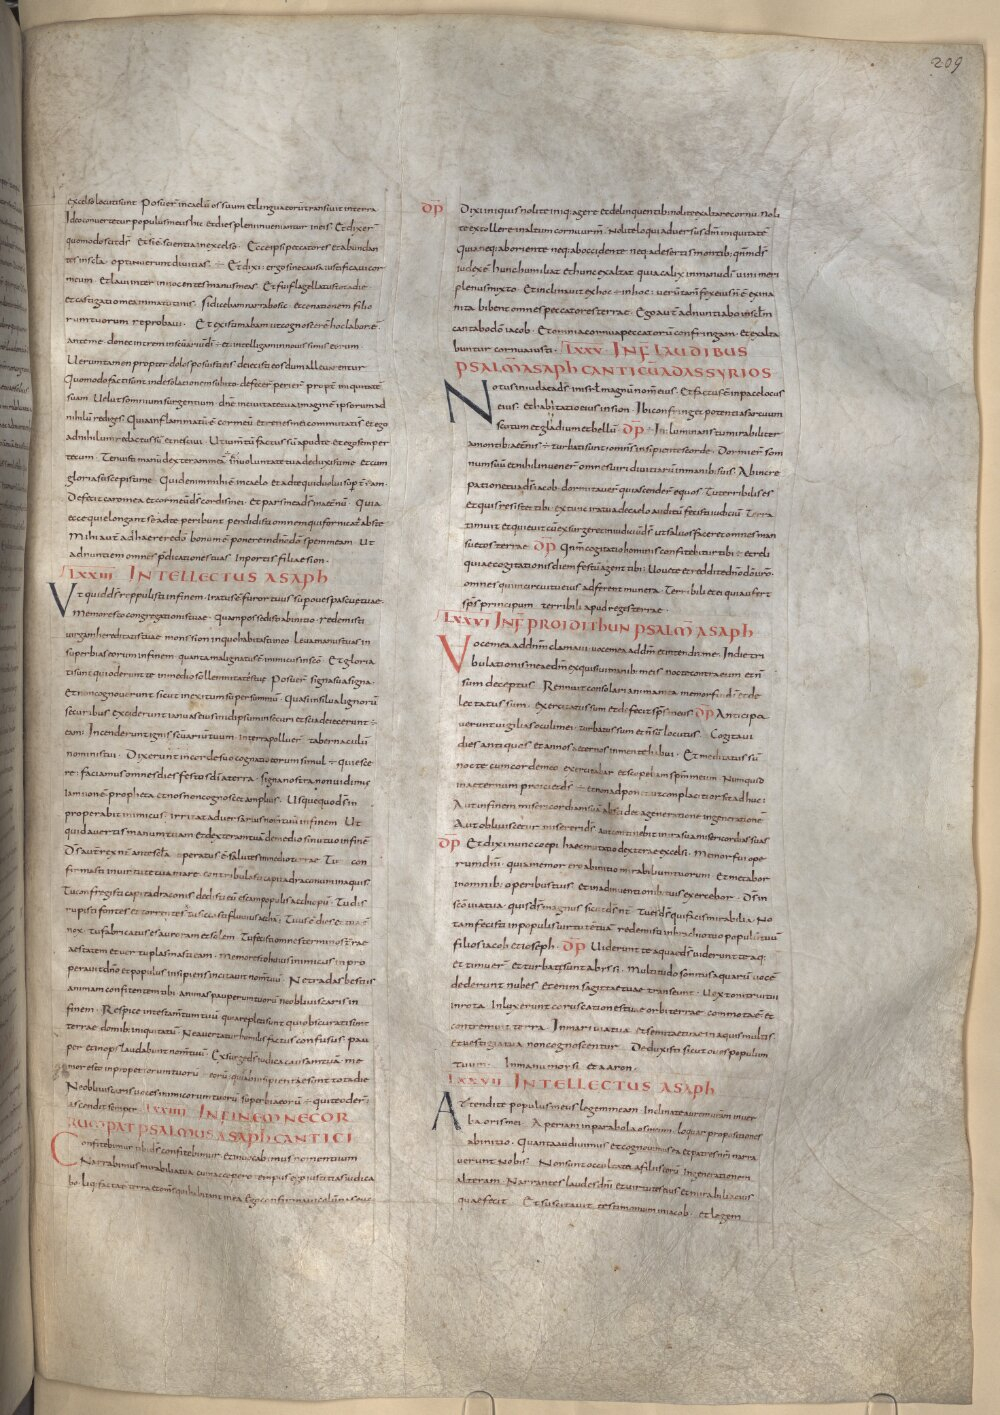 209
excelso locuti sunt Posuer̄ incaelū os suum et lingua eorū transivit interra
Ideo convertetur populus meus hic et dies pleni invenientur ineis Et dixer̄
quomodo scit ds̄ Et si ē scientia inexcelso Ecce ipsi peccatores et abundan
tes insc̄la optinuerunt divitias ÷ Et dixi: ergo sine causa iustificavi cor
meum Et lavi inter innocentes manus meas Et fui flagellatus tota die
et castigatio mea inmatutinis Si dicebam narrabo sic ecce nationem filio
rum tuorum reprobavi Et existimabam ut cognoscerē hoc labor ē
ante me donec intrem
Verumtamen propter dolos posuisti eis deiecisti eos dum allevarentur
Quomodo facti sunt indesolationem subito defecer̄ perier̄ propt̄ iniquitatē
suam Velut somnium surgentium dn̄e incivitate tua imaginē ipsorum ad
nihilū rediges Quia inflammatū ē cor meū et renes mei commutati s̄ et ego
ad nihilum redactus sū et nescivi Ut iumentū factus sū apud te et ego semper
tecum Tenuisti manū dexteram meā Involuntate tua deduxisti me et cum
gloria suscepisti me Quid enim mihi ē incaelo et a te quid volui sup̄ t̄ram
Defecit caro mea et cor meū ds̄ cordis mei et pars mea ds̄ inaet̄nū Quia
ecce qui elongant se a te peribunt perdidisti omnem qui fornicat̄ abs te
Mihi aut̄ adhaerere dō bonum ē ponere indn̄o dō spem meam Ut
adnuntiem omnes p̄dicationes tuas Inportis filiae sion
LXXIII INTELLECTUS ASAPH
Vt quid ds̄ reppulisti infinem iratus ē furor tuus sup̄ oves pascuae tuae
Memor esto congregationis tuae Quam possedisti abinitio Redemisti
virgam hereditatis tuae mons sion inquo habitasti ineo Leva manus tuas in
superbias eorum infinem quanta malignatus ē inimicus insc̄o Et gloria
ti sunt qui oderunt te inmedio sollemnitatis tuae Posuer̄ signa sua signa
Et non cognoverunt sicut inexitum super summū Quasi insilva lignorū
securibus exciderunt ianuas eius inidipsum insecuri et ascia deiecerunt ÷
eam Incenderunt igni sc̄uarium tuum Interra polluer̄ tabernaculū
nominis tui Dixerunt incorde suo cognatio eorum simul ÷ quiesce
re: faciamus omnes dies festos dī aterra Signa nostra non vidimus
Iam non ē propheta et nos non cognoscet amplius Usquequo ds̄ in
properabit inimicus irritat adversarius nom̄ tuū infinem Ut
quid avertis manum tuam et dexteram tuā demedio sinu tuo infinē
Ds̄ aut̄ rex nr̄ ante sc̄la operatus ē salutē inmedio terrae Tu con
firmasti invirtute tua mare contribulasti capita draconum inaquis
Tu confregisti capita draconis dedisti eū escam populis aethiopū Tu dis
rupisti fontes et torrentes tu siccasti fluvios aetham Tuus ē dies et tua ē
nox tu fabricatus es auroram et solem Tu fecisti omnes terminos t̄rae
aestatem et ver tu plasmasti eam Memor esto huius inimicus inpro
peravit dn̄o et populus insipiens incitavit nom̄ tuū Ne tradas bestiis
animam confitentem tibi animas pauperum tuorū ne obliviscaris in
finem Respice intestam̄tum tuū quia repleti sunt qui obscurati sunt
terrae domib; iniquitatū Ne avertatur humilis factus confusus pau
per et inops laudabunt nom̄ tuū Exsurge ds̄ iudica causam tuā me
mor esto inproperiorum tuorū eorū qui ab insipiente sunt tota die
Ne obliviscaris voces inimicorum tuorū superbia eorū ÷ qui te oder̄:
ascendit semper LXXIIII IN FINEM NE COR
RUMPAT PSALMUS ASAPH CANTICI
Confitebimur tibi ds̄ confitebimur et invocabimus nomen tuum
Narrabimus mirabilia tua cum accepero tempus ego iustitias iudica
bo Liq:facta ē terra et om̄s qui habitant inea Ego confirmavi colūnas eius
dp̄ Dixi iniquis nolite iniq; agere et delinquentib; nolite exaltare cornu Noli
te extollere inaltum cornu vr̄m Nolite loqui adversus dm̄ iniquitatē
Quia neq; aboriente neq; aboccidente neq; adesertis montib; qm̄ ds̄
iudex ē hunc humiliat et hunc exaltat quia calix inmanu dn̄i vini meri
plenus mixto Et inclinavit ex hoc ÷ in hoc: verūtam̄ fex eius n̄ ē exina
nita bibent omnes peccatores terrae Ego aut̄ adnuntiabo insc̄lm̄
cantabo dō iacob Et omnia cornua peccatorū confringam et exalta
buntur cornua iusti LXXV INF̄ LAUDIBUS
PSALM̄ ASAPH CANTICŪ AD ASSYRIOS
Notus iniudaea ds̄ inisrl̄ magnū nom̄ eius Et factus ē inpace locus
eius et habitatio eius insion Ibi confringet potentias arcuum
scutum et gladium et bellū dp̄ ÷ In:luminans tu mirabiliter
amontib; aet̄nis ÷ turbati sunt omnes insipientes corde Dormier̄ som
num suū et nihil invener̄ omnes viri divitiarū inmanib; suis Abincre
patione tua ds̄ iacob dormitaver̄ qui ascender̄ equos Tu terribilis es
et quis resistet tibi ex tunc ira tua decaelo auditū fecisti iudiciū Terra
timuit et quievit cū exsurgeret iniudiciū ds̄ ut salvos faceret omnes man
suetos terrae dp̄ Qm̄ cogitatio hominis confitebitur tibi ÷ et reli
quiae cogitationis diem festū agent tibi Vovete et reddite dn̄o dō vr̄o
omnes qui incircuitu eius adferent munera Terribili et ei qui aufert
sp̄s principum terribili apud reges terrae
LXXVI INF̄ PRO IDITHUN PSALM̄ ASAPH
Voce mea ad dn̄m clamavi voce mea ad dm̄ et intendit me Indie tri
bulationis meae dm̄ exquisivi manib; meis nocte contra eum et n̄
sum deceptus Rennuit consolari anima mea memor fui dī et de
lectatus sum exercitatus sum et defecit sp̄s meus dp̄ Anticipa
verunt vigilias oculi mei turbatus sum et n̄ sū locutus Cogitavi
dies antiquos et annos aeternos inmente habui Et meditatus sū
nocte cum corde meo exercitabar et scopebam sp̄m meum Numquid
inaeternum proiciet ds̄ ÷ et non adponet ut conplacitior sit adhuc:
Aut infinem misericordiam suā abscidet ageneratione ingenerationē
Aut obliviscetur misereri ds̄ aut continebit inira sua misericordias suas
dp̄ Et dixi nunc coepi haec mutatio dexterae excelsi Memor fui ope
rum dn̄i quia memor ero abinitio mirabilium tuorum Et meditabor
inomnib; operibus tuis et inadinventionib; tuis exercebor Ds̄ in
sc̄o via tua quis ds̄ magnus sicut ds̄ nr̄ Tu es ds̄ qui facis mirabilia No
tam fecisti inpopulis virtutē tuā redemisti inbrachio tuo populū tuū
filios iacob et ioseph dp̄ Viderunt te aquae ds̄ viderunt te aq:
et timuer̄ et turbati sunt abyssi Multitudo sonitus aquarū vocē
dederunt nubes Et enim sagittae tuae transeunt Vox tonitrui tui
inrota Inluxerunt coruscationes tuae orbi terrae commota ē et
contremuit terra Inmari via tua et semitae tuae inaquis multis
et vestigia tua non cognoscentur Deduxisti sicut oves populum
tuum Inmanu moysi et aaron
LXXVII INTELLECTUS ASAPH
Attendite populus meus legem meam Inclinate aurem vr̄am inver
ba oris mei Aperiam inparabola os meum loquar propositiones
abinitio Quanta audivimus et cognovimus ea et patres nr̄i narra
verunt nobis Non sunt occultata afiliis eorū ingeneratione
alteram Narrantes laudes dn̄i et virtutes eius et mirabilia eius
quae fecit Et suscitavit testimonium iniacob et legem